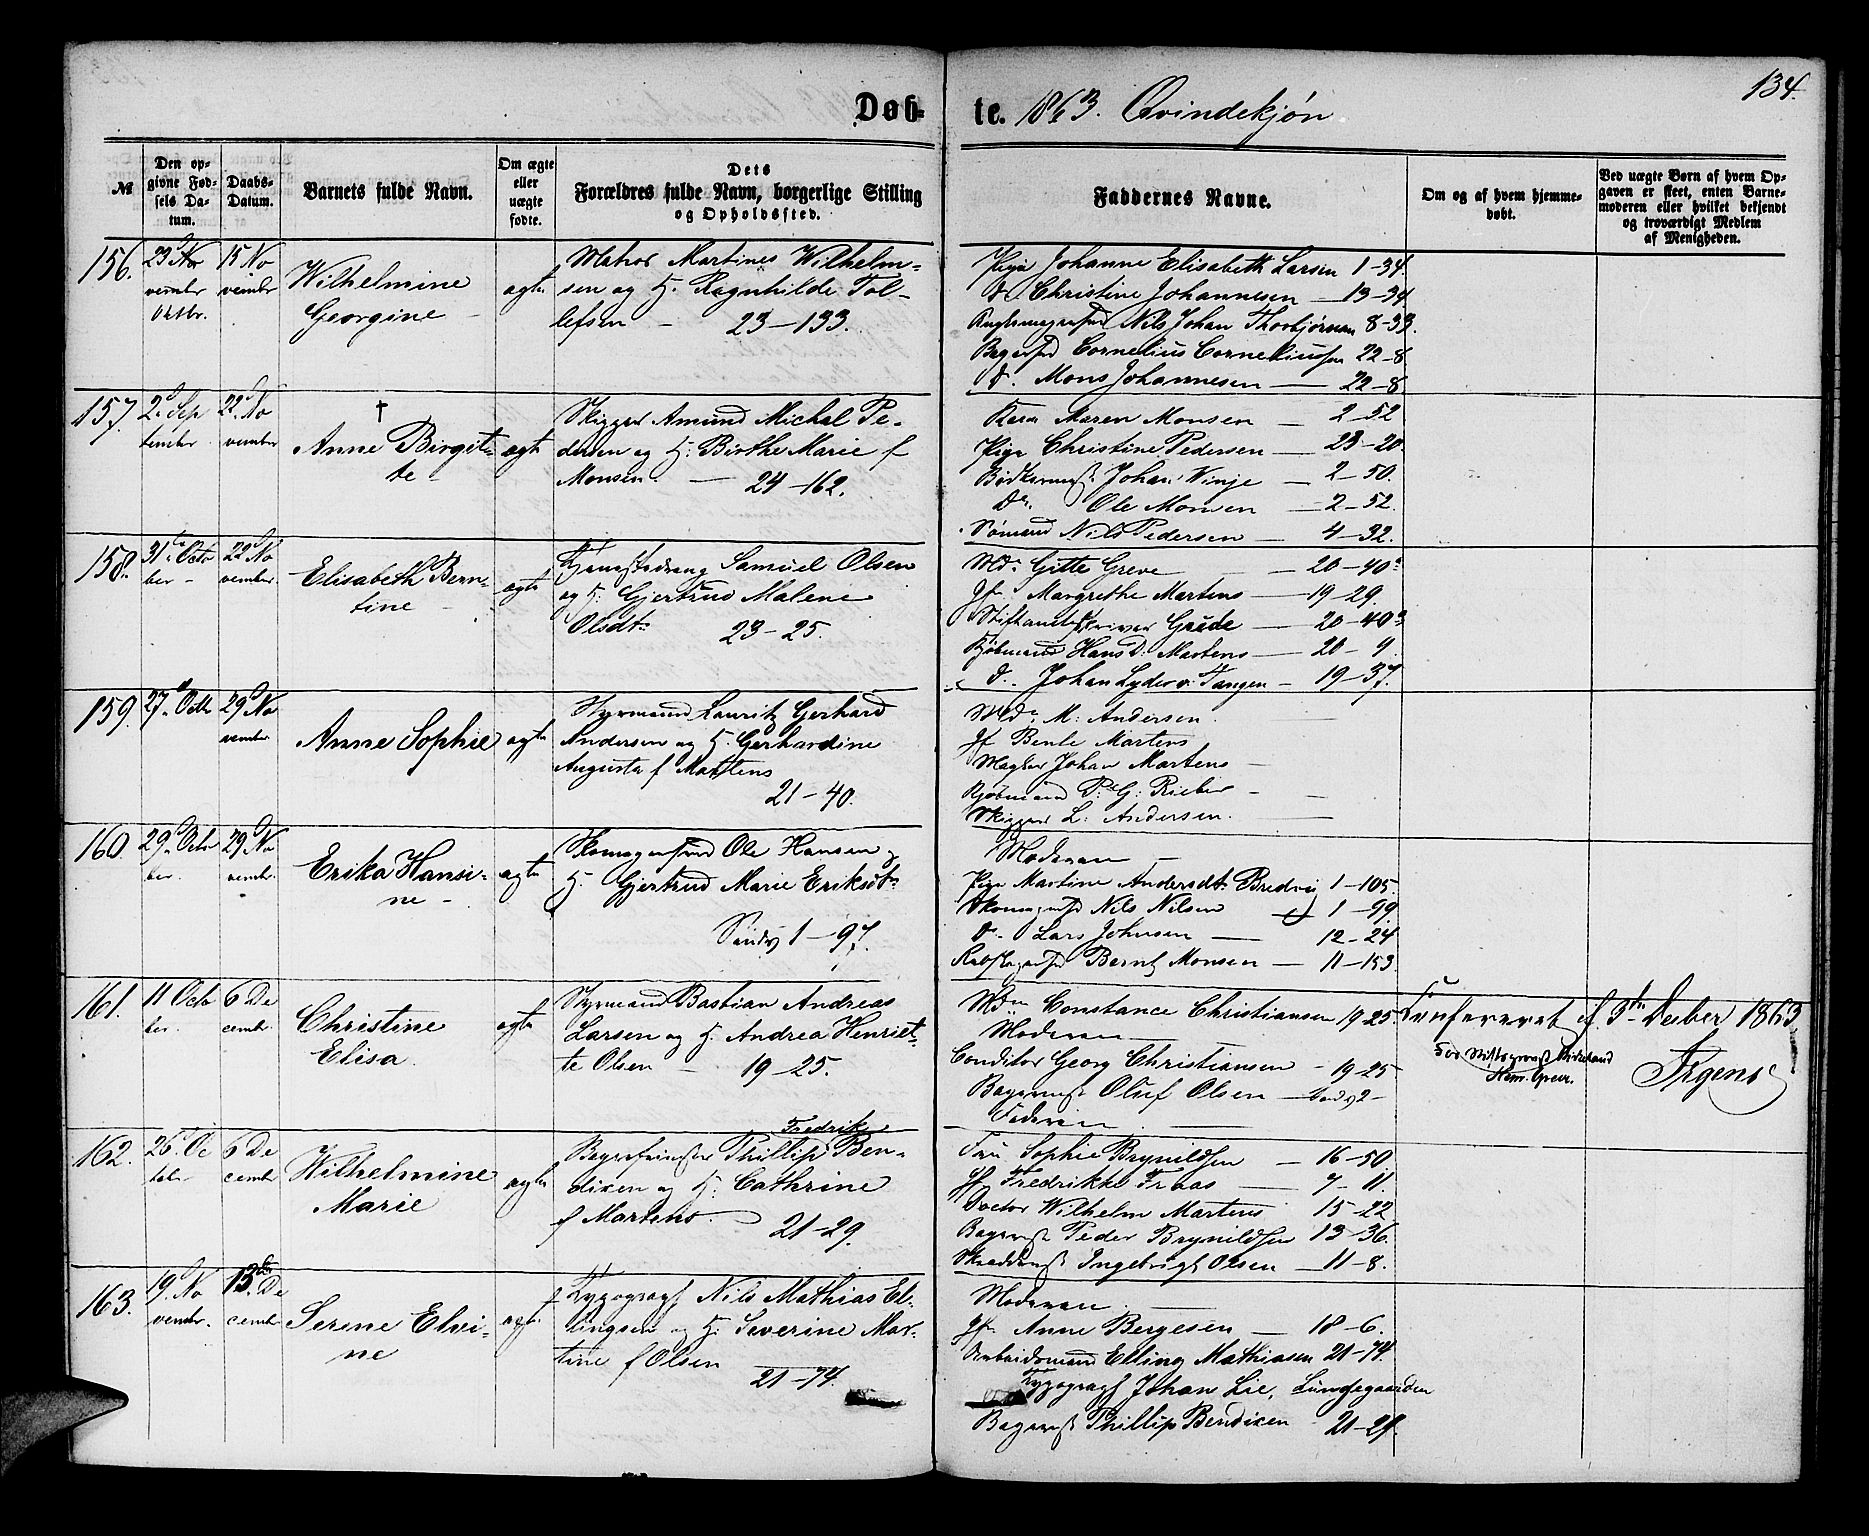 134.
Døb- te. 1863. Qvindekjøn
№
Den opgivne Fødsels Datum.
Daabs-Datum.
Barnets fulde Navn.
Om ægte eller uægte fødte.
Dets Forældres fulde Navn, borgerlige Stilling og Opholdssted.
Faddernes Navne.
Om og af hvem hjemmedøbt.
Ved uægte Børn af hvem Opgaven er skeet, enten Barnemoderen eller hvilket bekjendt og troværdigt Medlem af Menigheden.
156. 23 No 15 No
vember vember
Oktbr.
Wilhelmine
Georgine
ægte
Matros Martines Wilhelm-
sen og H. Ragnhilde Tol-
lefsen 23-133.
Pige Johanne Elisabeth Larsen 1-34.
d. Christine Johannesen 13-34.
Nils Johan Thorbjørnsen 8-33.
Cornelius Corneliussen 22-8
d. Mons Johannesen 22-8
157. 2 Sep 22 No
tember vember
†
Anne Birgit-
te
ægte
Skipper Amund Michal Pe-
dersen og H: Birthe Marie f
Monsen 24-162.
Kone Maren Monsen 2-52
Pige Christine Pedersen 23-20.
Bødkermst Johan Winje 2-50.
Do Ole Monsen 2-52.
Sømand Nils Pedersen 4-32.
158. 31 Octo 22 No
ber vember
Elisabeth Bern-
tine
ægte
Tjenestedreng Samuel Olsen
og H: Gjertrud Malene
Olsdtr 23-25.
Md: Gitte Greve 20-40a
Jfr. Margrethe Martens 19-29.
Stiftamtsskriver Grede 20-40a
Kjøbmand Hans D: Martens 20-9.
d. Johan Lyder v. Tangen 19-37.
159. 27 Octb 29 No
vember
Anne Sophie
ægte
Styrmand Lauritz Gerhard
Andersen og H. Gerhardine
Augusta f Martens
21-40.
Md. M: Andersen
Jf Bente Martens
Mægler Johan Martens
Kjøbmand P: G: Rieber
Skipper L: Andersen.
160. 29 Octo 29 No
ber. vembr.
Erika Hansi-
ne
ægte
Skomagersvend Ole Hansen og
H. Gjertrud Marie Eriksdtr
Sandv 1-97.
Moderen
Pige Martine Andersdtr Bredvig 1-105
Skomagersvd Nils Nilsen 1-99.
d. Lars Johnsen 12-24
Rebslagersvd Bernt Monsen 11-153
161. 11 Octo 6 De
ber. cembr.
Christine
Elisa.
ægte
Styrmand Bastian Andreas
Larsen og H. Andrea Henriet-
te Olsen 19-25.
Mdm Constance Christiansen 19-25.
Moderen
Conditor Georg Christiansen 19-25
Bagermst Oluf Olsen
Faderen
Confereret d. 3die Decber 1863
for Stiftsprovst Birkeland
Herm. Greve.
162. 26 Oc 6 De
tobr cembr
Wilhelmine
Marie
ægte
Fredrik
Bogtrykker Phillip Ben-
dixen og H: Cathrine
f Martens. 21-29.
Fru Sophie Brynildsen 16-50
Jf Fredrikke Fraas 7-11.
Doctor Wilhelm Martens 15-22
Bagermst Peder Brynildsen 13-36.
Skreddermst Ingebrigt Olsen 11-8.
163. 19 No 13 De
vembr. cembr
Serene Elvi-
ne
ægte
Typograph Nils Mathias El-
lingsen og H: Severine Mar-
tine f Olsen
21-74.
Moderen.
Jfr Anne Bergesen 18-6.
Arbeidsmand Elling Mathiasen 21-74.
Typograph Johan Lie, Lungegaarden
Bagermst Phillip Bendixen 21-29.